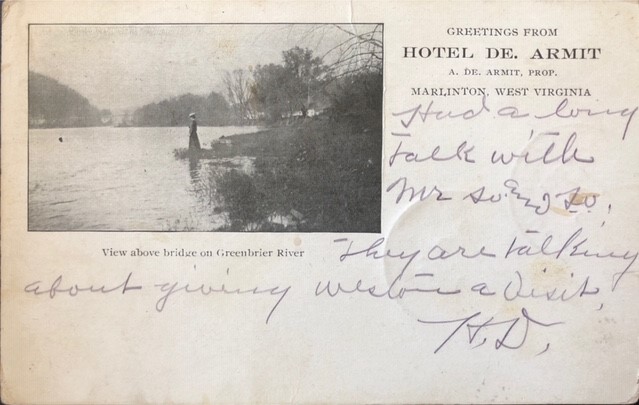 GREETINGS FROM
HOTEL DE. ARMIT
A. DE. ARMIT, PROP.
MARLINTON, WEST VIRGINIA
Had a long
talk with
Mr so and so.
View above bridge on Greenbrier River
They are talking
about giving Weston a visit,
H.D.